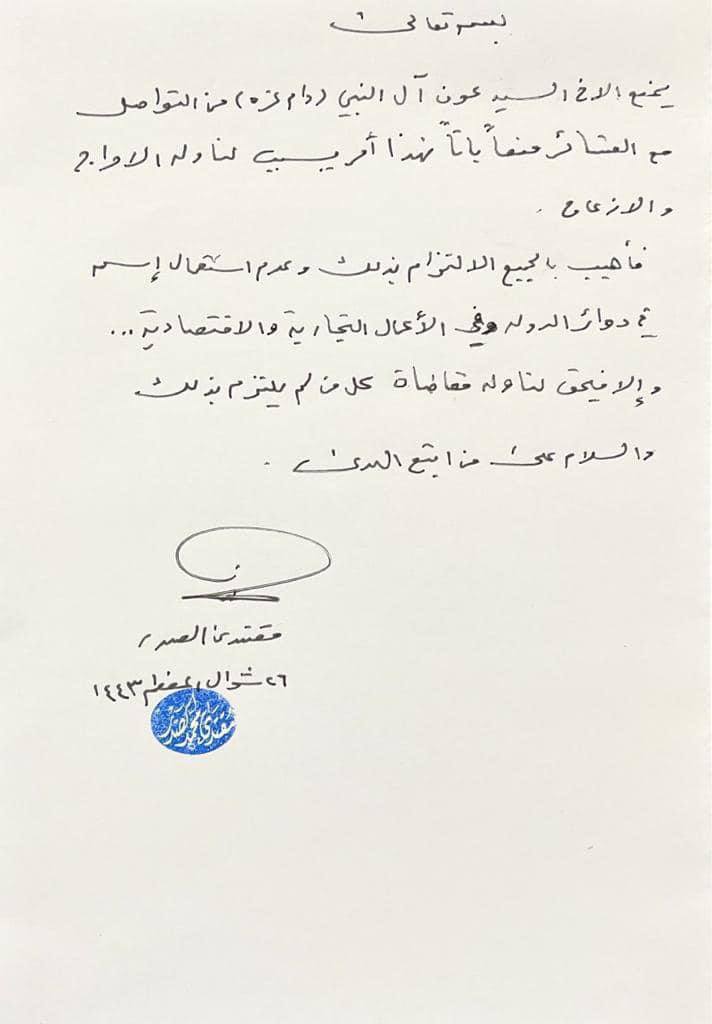 بسمه تعالى
يمنع الاخ السيد عون آل النبي (دام عزه) من التواصل
مع العشائر منعاً باتاً فهذا أمر يسبب لنا وله الاحراج
والازعاج .
فأهيب بالجميع الالتزام بذلك وعدم استعمال إسمه
في دوائر الدولة وفي الأعمال التجارية والاقتصادية ...
وإلا فيحق لنا وله مقاضاة كل من لم يلتزم بذلك
والسلام على من اتبع الهدى .
مقتدى الصدر
٢٦ شوال المعظم ١٤٤٣
مقتدى محمد الصدر